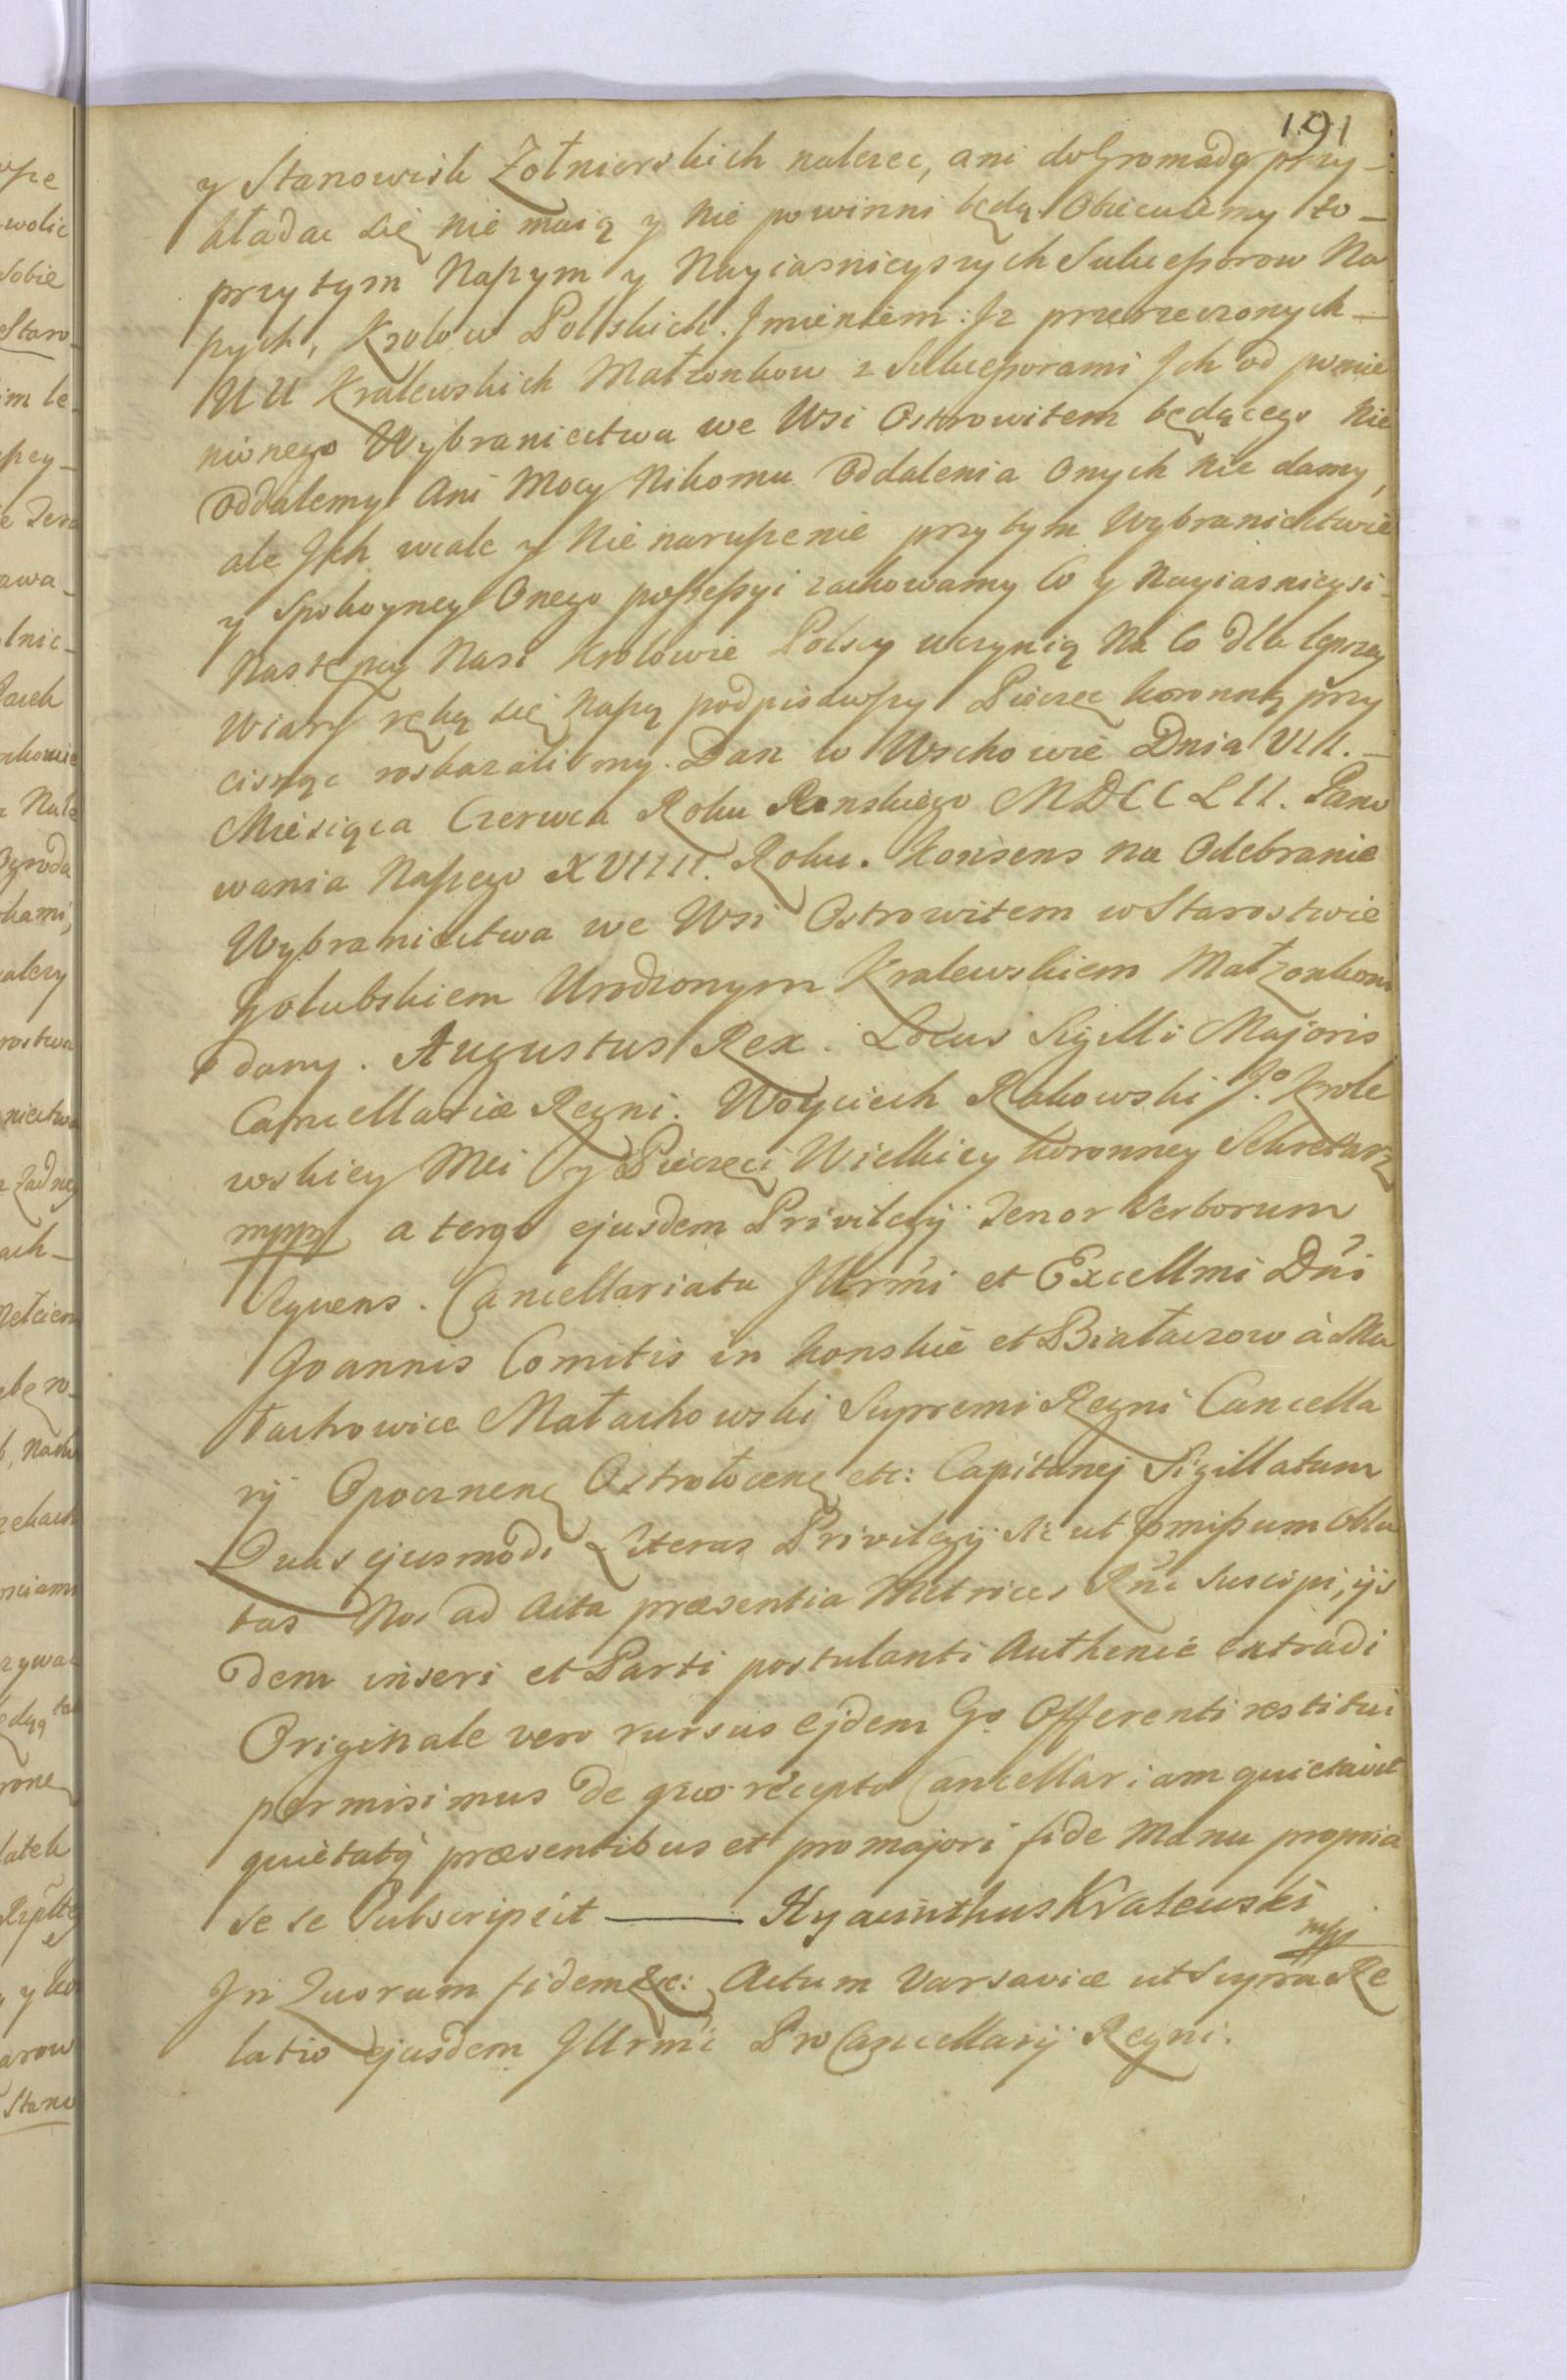 191
y Stanowisk Żołnierskich należeć, ani do Gromady przy-
kładac się nie maią y nie powinni będą. Obiecuiemy to-
przytym Naszym y Nayiasnieyszych Sukcessorow Na
szych, Krolow Polskich. Jmieniem: Jz przerzeczonych-
UU Kralewskich Małżonkow z Sukcessorami Jch od pomie
nionego Wybraniectwa we Wsi Ostrowitem będącego nie
oddalemy Ani Mocy Nikomu Oddalenia Onych nie damy,
ale Jch wcale y Nie naruszenie przytym Wybraniectwie
y Spokoyney Onego possessyi zachowamy Co y Nayiasnieysi-
Następcy Nasi Krolowie Polscy uczynią Na Co dla lepszey
Wiary ręką się Naszą podpisawszy Pieczęc koronną przy
cisnąc roskazalismy. Dan w Wschowie Dnia VIII.-
Miesiąca Czerwca Roku Panskiego MDCCLII. Pano
wania Naszego XVIIII. Roku. Konsens na Odebranie
Wybraniectwa we Wsi Ostrowitem w Starostwie
Golubskiem Urodzonym Kralewskiem Małżonkom
dany. Augustus Rex. Locus Sigilli Majoris
Cancellariæ Regni. Woyciech Rakowski J.o Krole
wskiey Mci y Pieczęci Wielkiey Koronney Sekretarz
mppr a tergo ejusdem Privilegij Tenor Verborum
Sequens. Cancellariatu Jllrmi et Excellmi Dni
Joannis Comitis in Konskie et Białaczow à Ma
łachowice Małachowski Supremi Regni Cancella
rij Opocznen Ostrołęcen etc: Capitanej Sigillatum
Quas ejusmodi Literas Privilegij sic ut pmissum Obla
tas Nos ad Acta præsentia Metrices Rni Suscipi, ijs
dem inseri et Parti postulanti Authenće extradi
Originale vero rursus ejdem Gso Offerenti restitui
permisimus de quo recepto Cancellariam quietavit
quietatq præsentibus et pro majori fide Manu propria
se se Subscripsit ——— Hyacinthus Kralewski
mpp
Jn Quorum fidem &c: Actum Varsaviæ ut Supra Re
latio ejusdem Jllrmi ProCancellarij Regni.